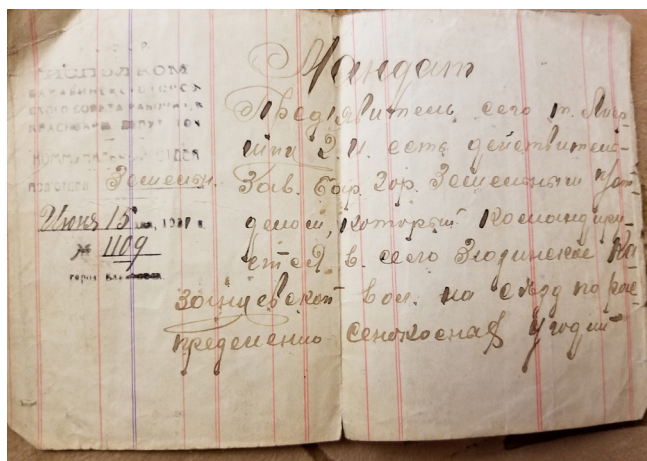 ИСПОЛКОМ
БАРАБИНСКОГО ГОРОД
СКОГО СОВЕТА РАБОЧИХ И
КРАСНОАРМ ДЕПУТ ТОВ
КОММУНАЛЬНЫЙ ОТДЕЛ
ПОДОТДЕЛ Земельн.
Июня 15 дня, 192 г.
№ 1109
город
Мандат
Предъявитель сего т.
есть действител-
Зав. Бар. Гор. Земельным
делом, который Командиру-
ется в. село Ка
вол. на съезд по рас
пределению сенокосная угодий